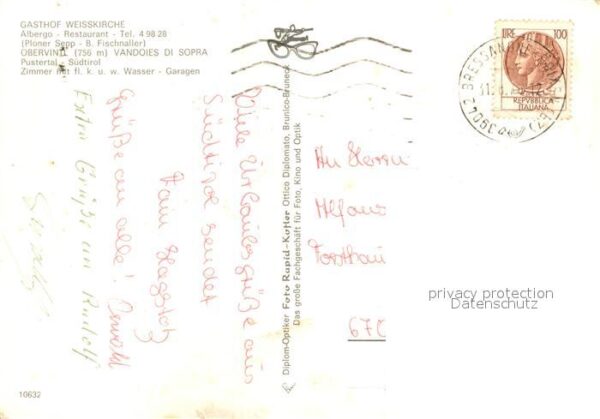 GASTHOF WEISSKIRCHE
Albergo - Restaurant - Tel. 4 98 28
(Ploner Sepp - B. Fischnaller)
OBERVINTL (756 m) VANDOIES DI SOPRA
Pustertal - Südtirol
Zimmer mit fl. k. u. w. Wasser - Garagen
Viele Urlaubsgrüße aus
Südtirol sendet
Fam.
Grüße an alle! Oswald
Extra Grüße an Rudolf
Diplom-Optiker Foto Rapid-Kofler Ottico Diplomato, Brunico-Bruneck
Das große Fachgeschäft für Foto, Kino und Optik
LIRE 100
REPVBBLICA
ITALIANA
39042 BRESSANONE
An Herrn
Alfons
670
privacy protection
Datenschutz
10632